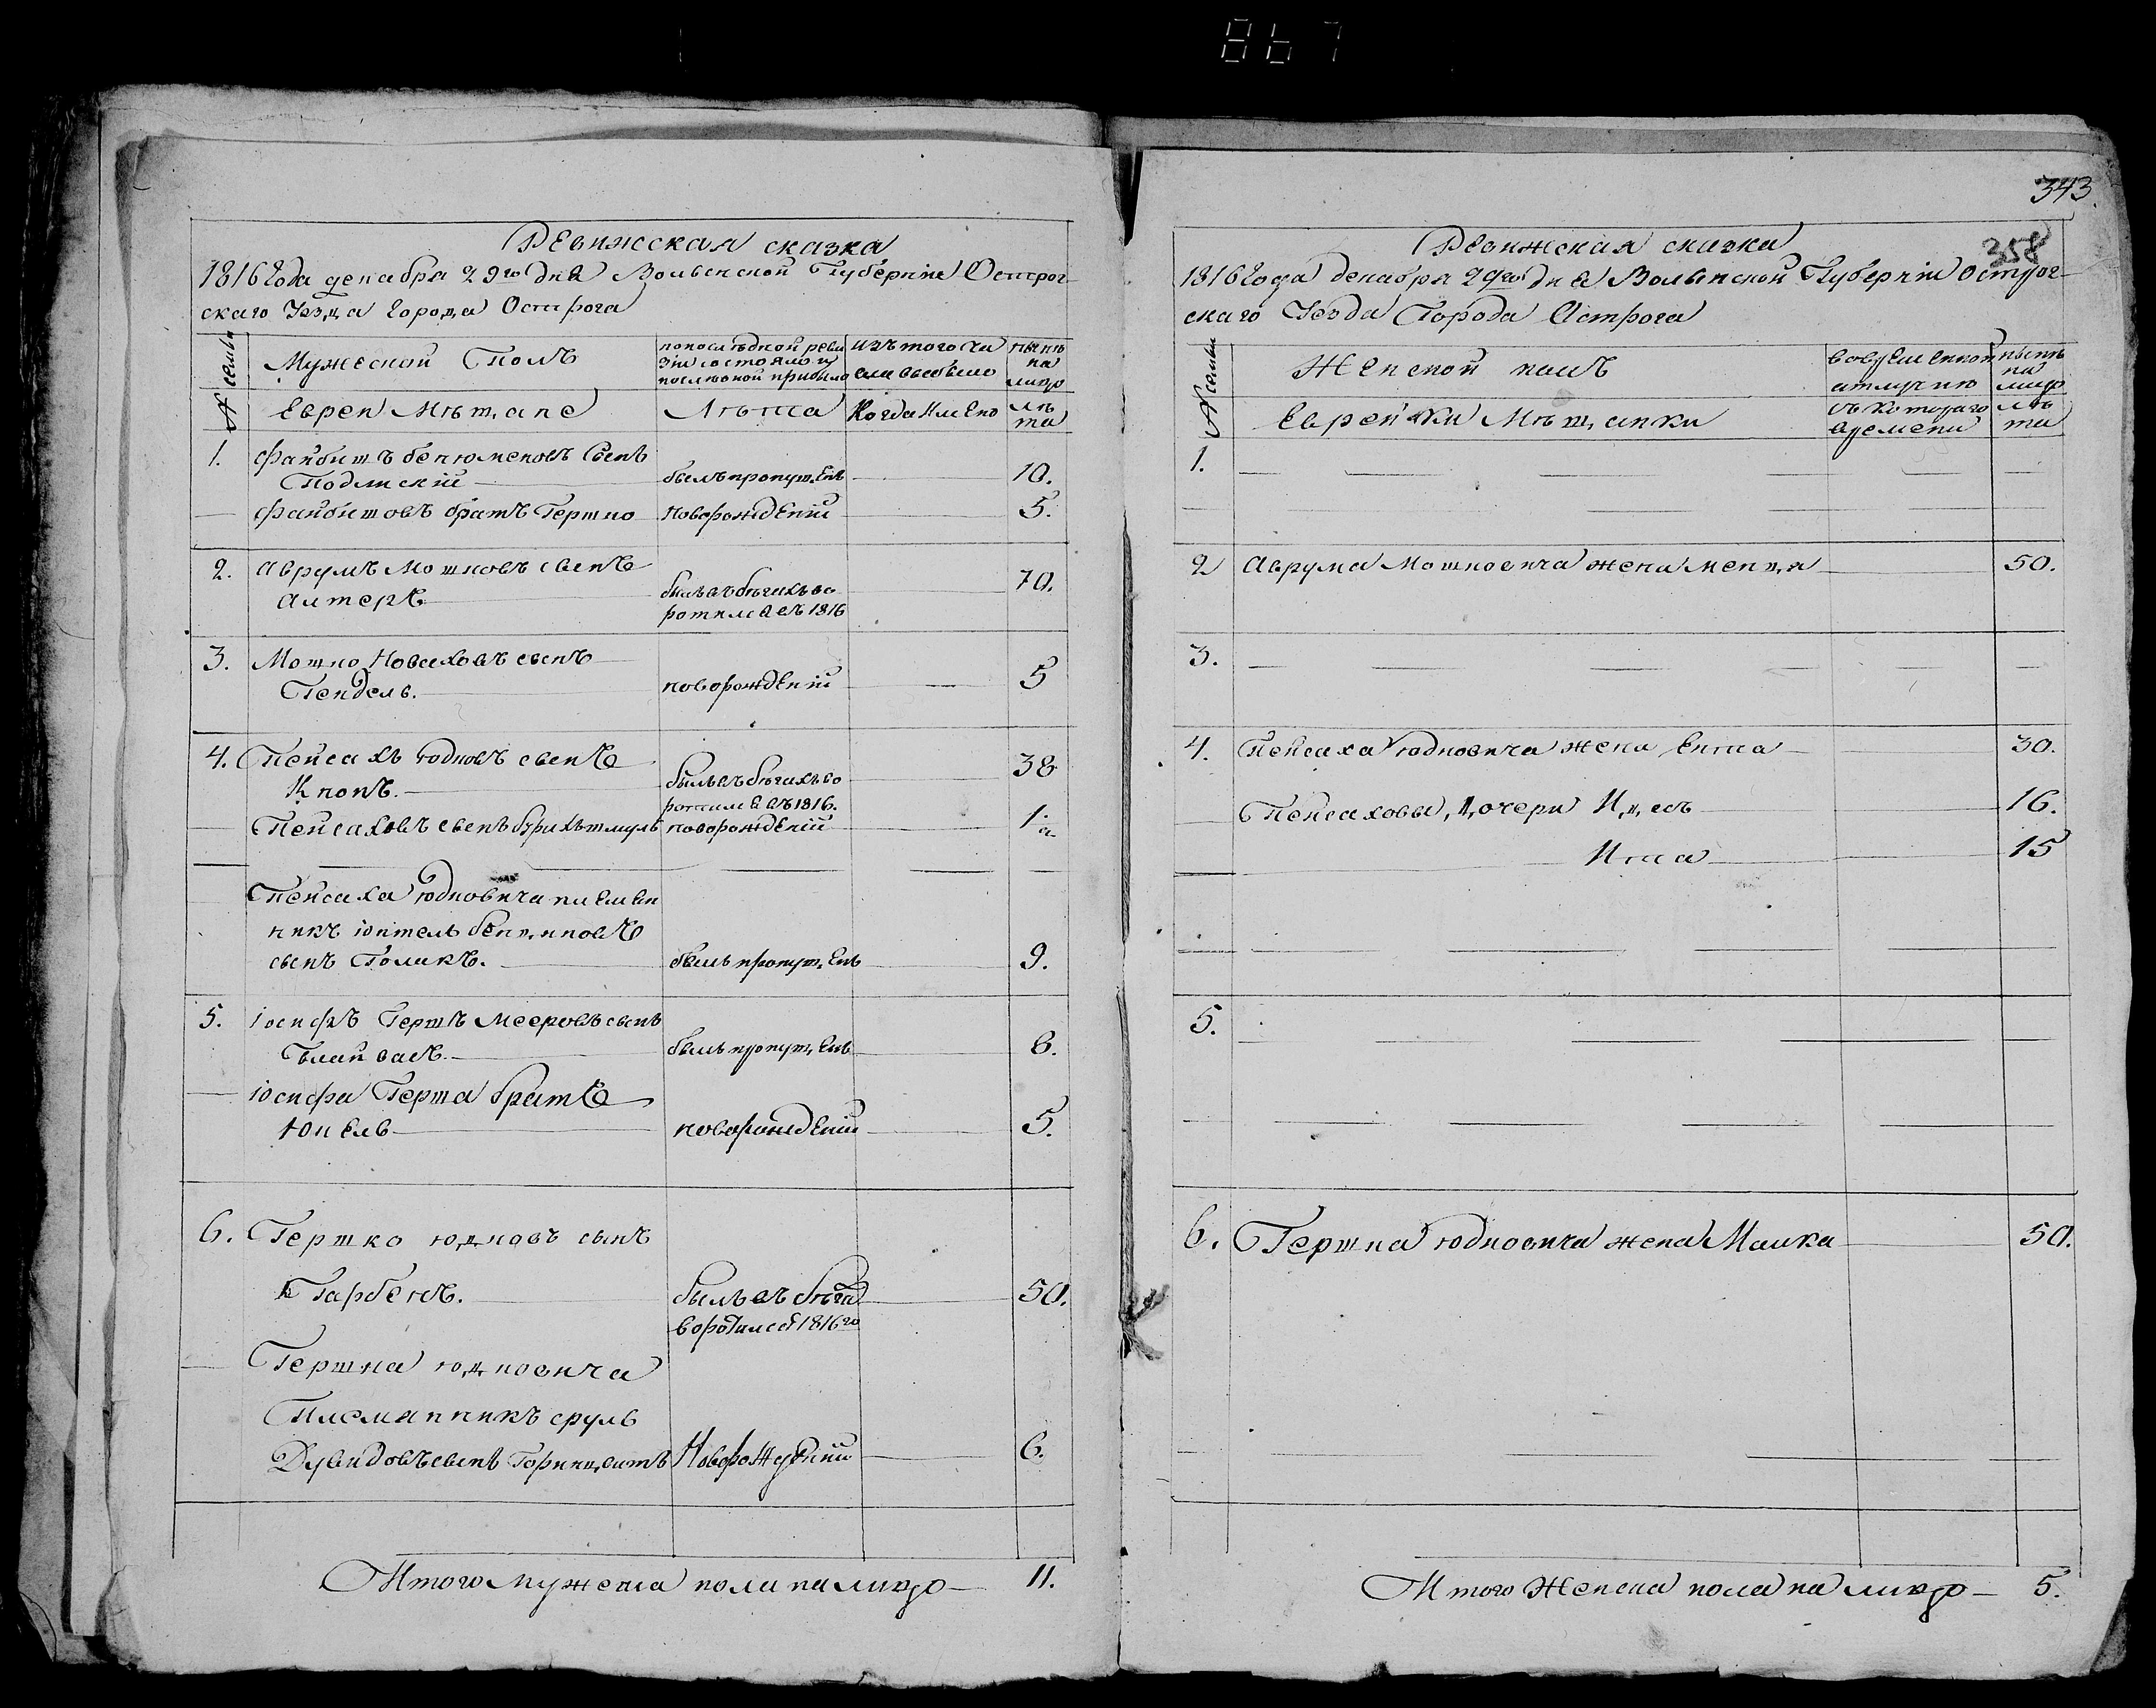 867
Ревижская сказка
1816 Года декабря 29го дня Волынской Губерніи Острог
скаго Уезда Города Острога
№ семьи
Мужеской Полъ
по последней реви
зіи состояло и
после оной прибыло
изъ того чи
сла выбыло
ныне
на
лицо
Евреи Мещане
Лета
Когда имено
ле
та
1. Файбишъ Бенюменовъ Сынъ
Подлиский
былъ пропущенъ
10.
Файбишовъ братъ Гершко
Новорождений
5.
2. Аврумъ Мошковъ сынъ
Алтеръ
былъ въ бегахъ во
ротился въ 1816
70.
3. Мошко Новаховъ сынъ
Гендель.
новорождений
5
4. Пейсахъ Юдковъ сынъ
Кнопъ.
былъ въ бегахъ во
ротился въ 1816.
38
Пейсаховъ сынъ
новорождений
1.
Пейсаха Юдковича племен
никъ
сынъ Голикъ.
былъ пропущенъ
9.
5. Іосифъ Гершъ Мееровъ сынъ
былъ пропущенъ
8.
Іосифа Герша братъ
новорождений
5.
6. Гершко Юдковъ сынъ
Гарбенъ.
былъ въ бега
воротился 1816го
50.
Гершка Юдковича
Племянникъ Сруль
Дувидовъ сынъ
Новорождений
6.
Итого мужеска пола на лицо 11.
343.
358
Ревижская сказка
1816 Года декабря 29го дня Волынской Губерніи Острог
скаго Уезда Города Острога
№ семьи
Женской полъ
во временной
отлучке
ныне
на
лицо
Еврейки Мещанки
съ котораго
времени
ле
та
1.
2 Аврума Мошковича жена Менця 50.
3.
4. Пейсаха Юдковича жена Ента 30.
Пейсаховы дочери 16.
Ита 15
5.
6. Гершка Юдковича жена Малка 50.
Итого Женска пола на лицо 5.